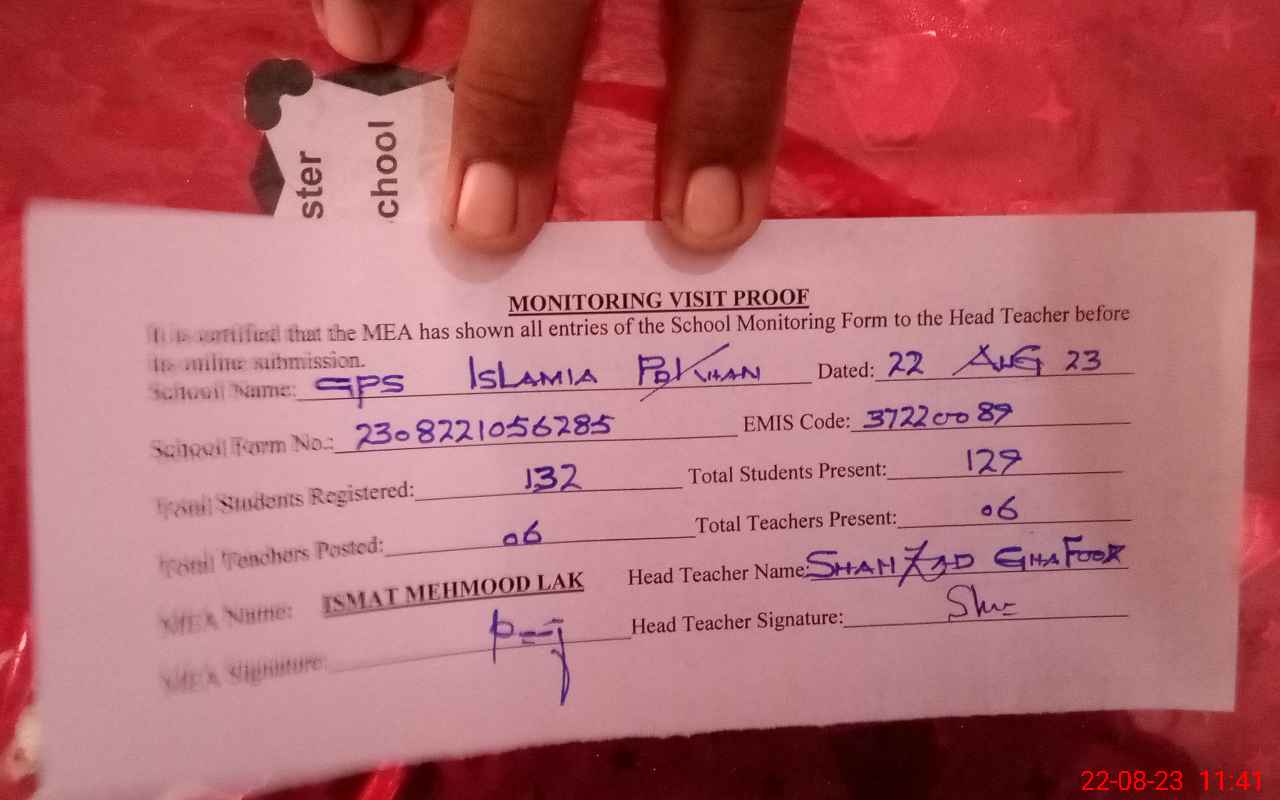 ster
chool
MONITORING VISIT PROOF
It is certified that the MEA has shown all entries of the School Monitoring Form to the Head Teacher before
its online submission.
School Name: GPS ISLAMIA PDKHAN Dated: 22 AUG 23
School Form No.: 2308221056285 EMIS Code: 37220089
Total Students Registered: 132 Total Students Present: 129
Total Teachers Posted: 06 Total Teachers Present: 06
MEA Name: ISMAT MEHMOOD LAK Head Teacher Name: SHAHZAD GHAFOOR
MEA Signature: Head Teacher Signature:
22-08-23 11:41